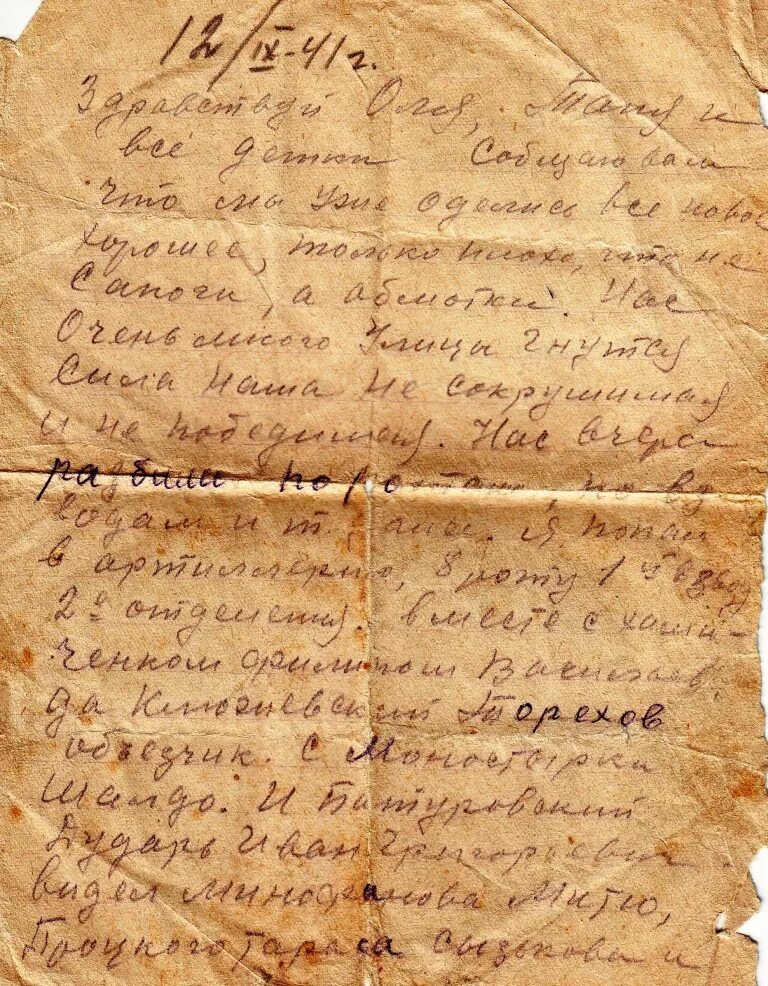 12/IX-41г.
Здравствуй Оля, Таня и
все детки Собщаю вам
что мы уже оделись все новое
хорошее, только плохо, что не
Сапоги, а абмотки. Нас
Очень много Улицы гнутся
Сила наша не сокрушимая
и не победимая. Нас вчера
разбили по ротам, по вз
водам и т. Я попал
в артиллерию, 8 роту 1й взвод
2е отделения. вместе с хам-
ченком филипом Васильев.
да Клюзиевский Торехов
объездчик. С Моностырки
Шалдо. И Батуровский
Дударь Иван Григорьевич.
видел Митю,
Троцкого тараса Сызькова и